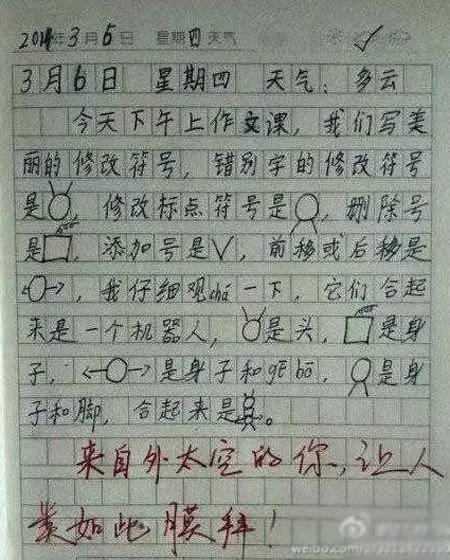 2014年3月6日 星期四 天气
3月6日 星期四 天气:多云
今天下午上作文课,我们写美
丽的修改符号,错别字的修改符号
是 修改标点符号是 ,删除号
是 ,添加号是√,前移或后移是
,我仔细观chá一下,它们合起
来是一个机器人, 是头, 是身
子, 是身子和gē bō, 是身
子和脚,合起来是 。
来自外太空的你,让人
类如此膜拜!
weibo.com/